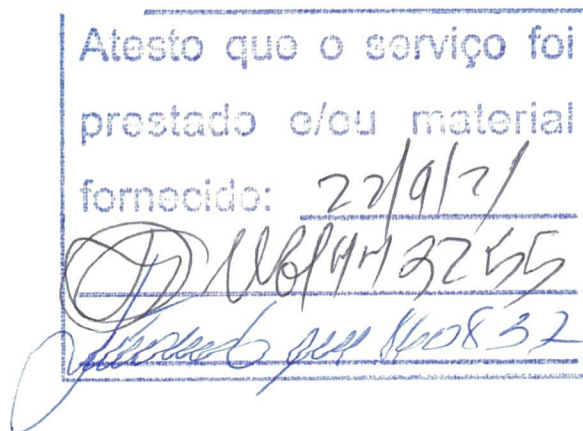 Atesto que o serviço foi
prestado e/ou material
fornecido: 22/9/21
3255
860832